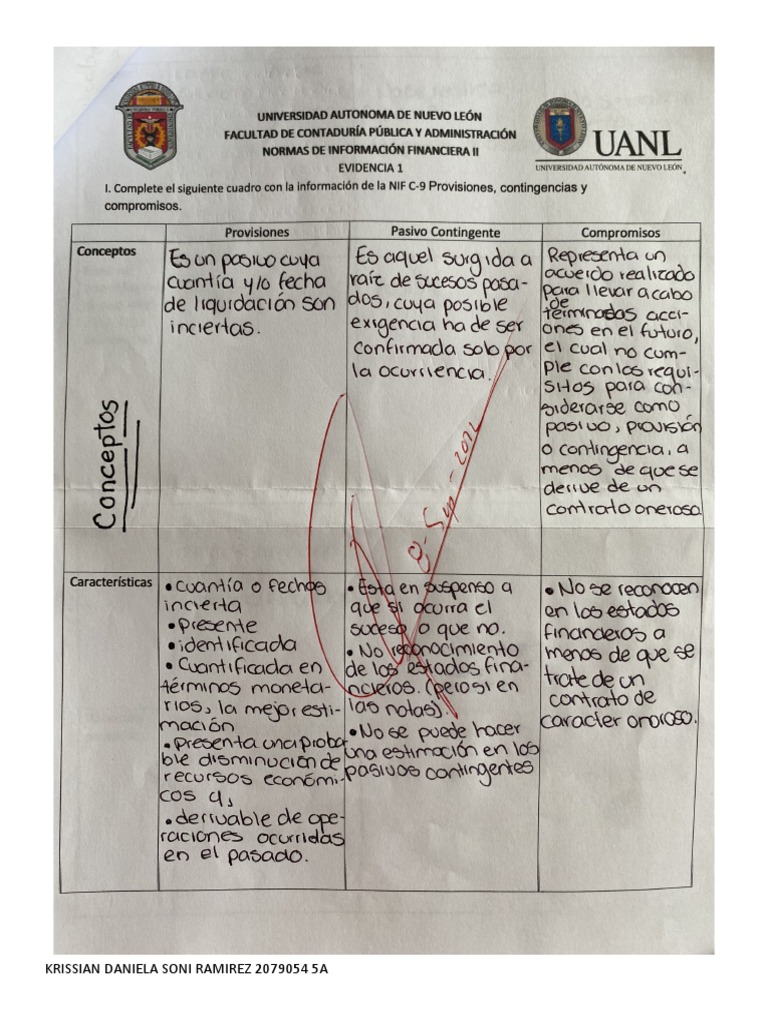 UNIVERSIDAD AUTONOMA DE NUEVO LEÓN
FACULTAD DE CONTADURÍA PÚBLICA Y ADMINISTRACIÓN
NORMAS DE INFORMACIÓN FINANCIERA II
EVIDENCIA 1
UANL
UNIVERSIDAD AUTÓNOMA DE NUEVO LEÓN
I. Complete el siguiente cuadro con la información de la NIF C-9 Provisiones, contingencias y
compromisos.
Provisiones
Pasivo Contingente
Compromisos
Conceptos
Es un pasivo cuya
cuantía y/o fecha
de liquidación son
inciertas.
Es aquel surgida a
raíz de sucesos pasa-
dos, cuya posible
exigencia ha de ser
confirmada solo por
la ocurriencia.
Representa un
acuerdo realizado
para llevar acabo
de
terminadas acci-
ones en el futuro,
el cual no cum-
ple con los requi-
sitos para con-
siderarse como
pasivo, provisión
o contingencia, a
menos de que se
derive de un
contrato oneroso
Conceptos
Características
• cuantía o fechas
incierta
• Presente
• identificada
• Cuantificada en
términos moneta-
rios, la mejor esti-
mación
• Presenta una proba-
ble disminución de
recursos económi-
cos y,
• derivable de ope-
raciones ocurridas
en el pasado.
• Esta en suspenso a
que si ocurra el
suceso o que no.
• No reconocimiento
de los estados fina-
ncieros. (pero si en
las notas).
• No se puede hacer
una estimación en los
pasivos contingentes
• No se reconocen
en los estados
financieros a
menos de que se
trate de un
contrato de
caracter onoroso.
KRISSIAN DANIELA SONI RAMIREZ 2079054 5A